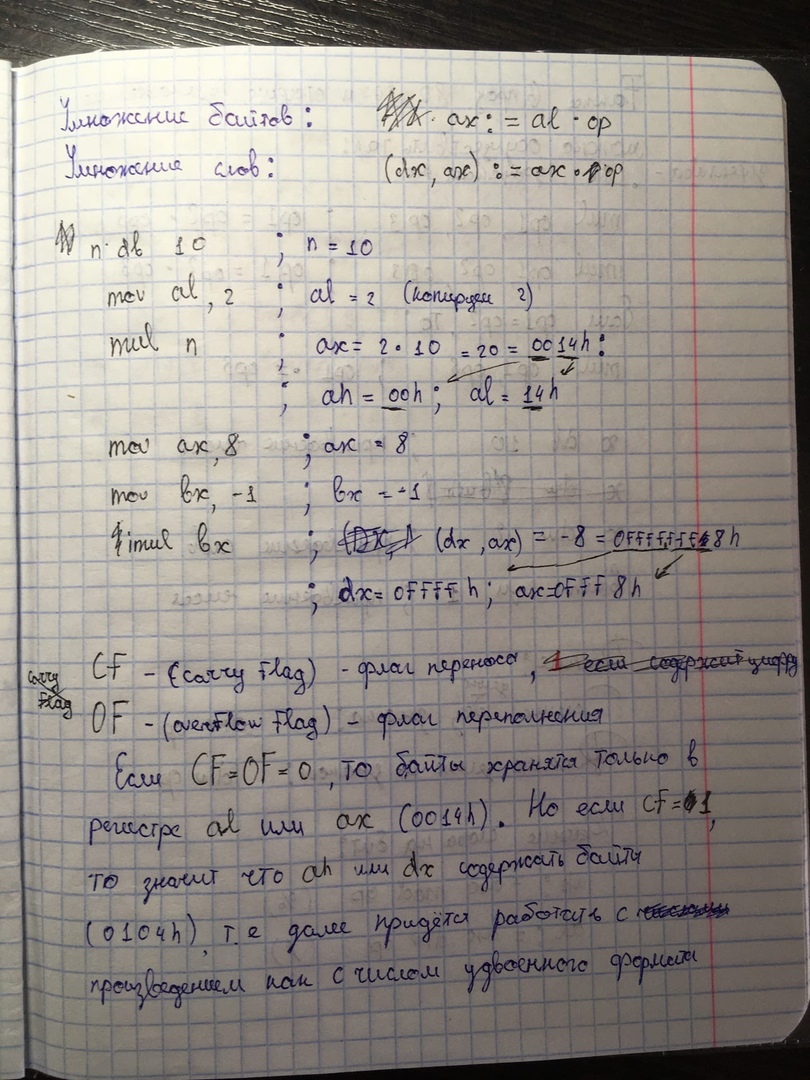 Умножение байтов: ax := al · op
Умножение слов: (dx, ax) := ax · op
n db 10 ; n = 10
mov al, 2 ; al = 2 (копируем 2)
mul n ; ax = 2 · 10 = 20 = 0014h :
; ah = 00h ; al = 14h
mov ax, 8 ; ax = 8
mov bx, -1 ; bx = -1
imul bx ; (dx, ax) = -8 = 0FFFFFFF8h
; dx = 0FFFFh ; ax = 0FFF8h
CF - (carry flag) - флаг переноса, если содержит цифру
Carry
Flag
OF - (overflow flag) - флаг переполнения
Если CF=OF=0, то байты хранятся только в
регистре al или ax (0014h). Но если CF=1,
то значит что ah или dx содержать байты
(0104h), т.е далее придётся работать с
произведением как с числом удвоенного формата